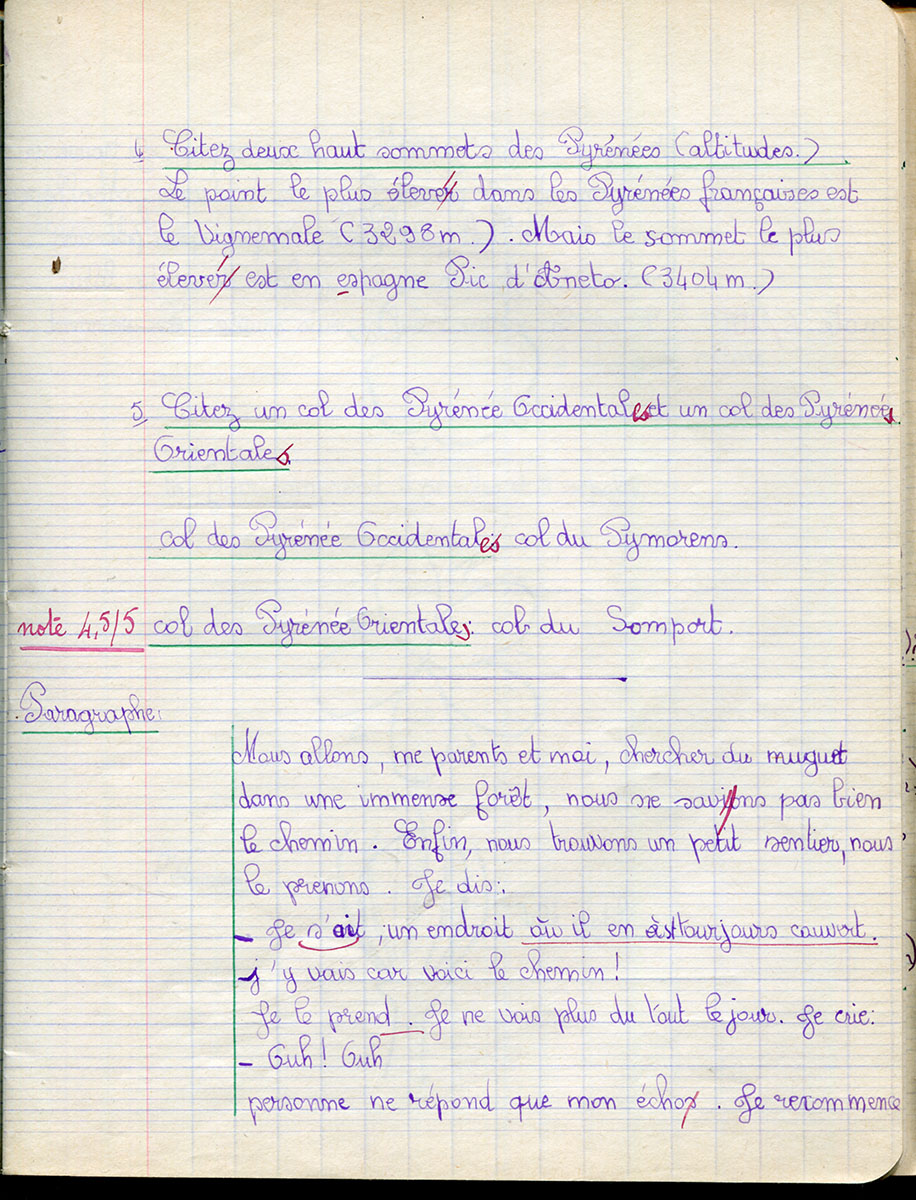 4 Citez deux haut sommets des Pyrénées (altitudes.)
Le point le plus élever dans les Pyrénées françaises est
le Vignemale (3298m.). Mais le sommet le plus
élever est en espagne Pic d'Aneto. (3404m.)
5 Citez un col des Pyrénée Occidentales et un col des Pyrénées
Orientales
col des Pyrénée Occidentales col du Pymorens.
note 4,5/5 col des Pyrénée Orientales: col du Somport.
Paragraphe:
Nous allons, me parents et moi, chercher du muguet
dans une immense forêt, nous ne savions pas bien
le chemin. Enfin, nous trouvons un petit sentier, nous
le prenons. Je dis:
- Je s'ait, un endroit où il en est tourjours couvert.
j'y vais car voici le chemin!
Je le prend. Je ne vois plus du tout le jour. Je crie:
- Ouh! Ouh
personne ne répond que mon échos. Je recommence